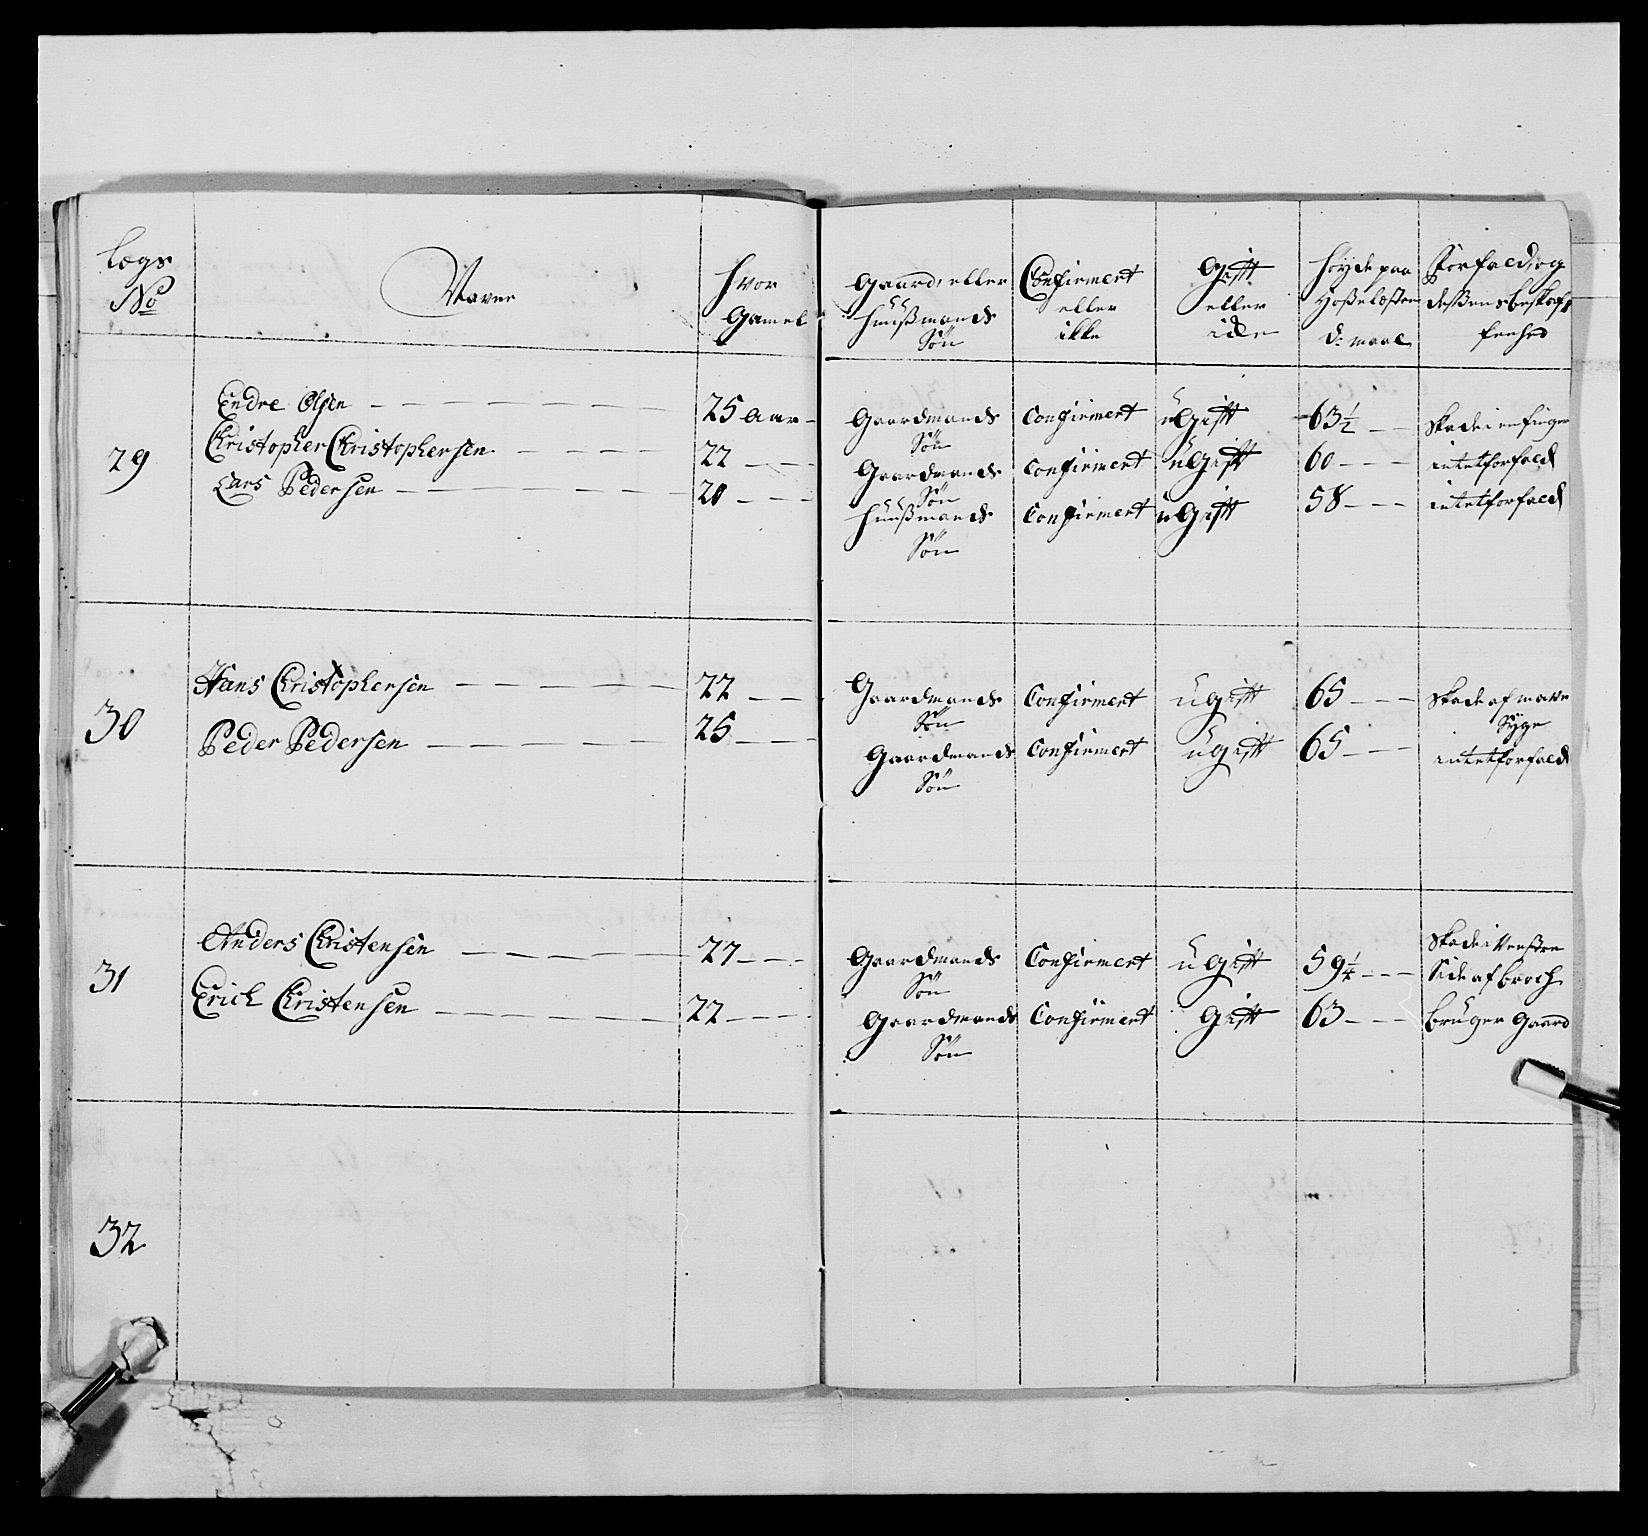 Lægs No | Navne | Hvor Gamel | Gaard, eller Huußmands Sön | Confirmert eller ikke | Gift eller icke | Høyde paa Hoßeløsten d: maal | Forfald, og deßens beskaffenhed
29
Endre Olsen | 25 aar | Gaardmands Sön | Confirmert | ugift | 63½ | skade i en finger
Christopher Christophersen | 22 | Gaardmands Sön | Confirmert | ugift | 60 | intet forfald
Lars Pedersen | 20 | Huußmands Sön | Confirmert | ugift | 58 | intet forfald
30
Hans Christophersen | 22 | Gaardmands Sön | Confirmert | ugift | 65 | skade af mave Syge
Peder Pedersen | 25 | Gaardmands Sön | Confirmert | ugift | 65 | intet forfald
31
Anders Christensen | 27 | Gaardmands Sön | Confirmert | ugift | 59¼ | skade i Venstre Side af broch
Erich Christensen | 22 | Gaardmands Sön | Confirmert | Gift | 63 | bruger Gaard
32